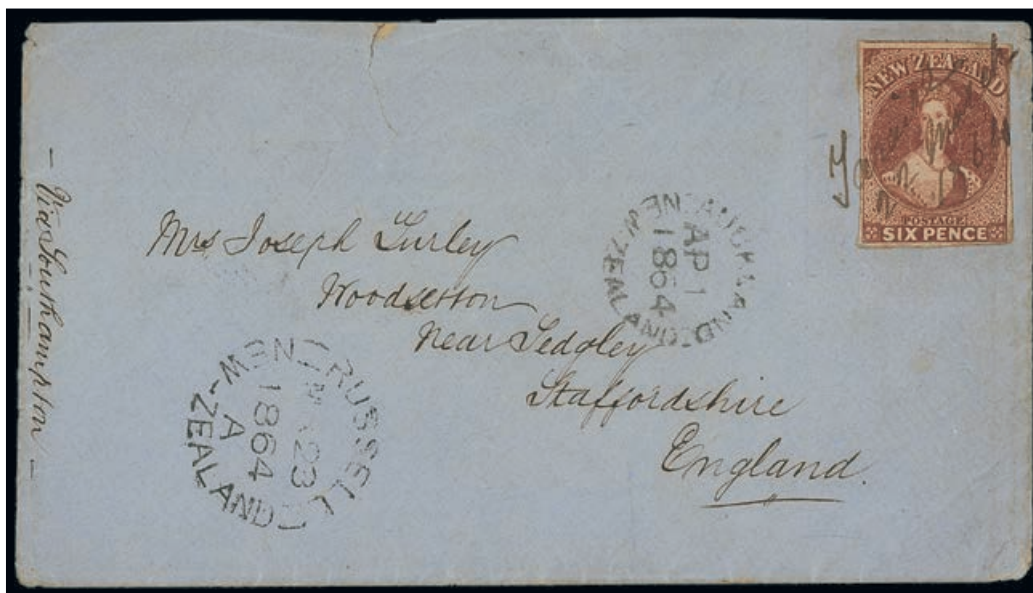 NEW ZEALAND
POSTAGE
SIX PENCE
— Via Southampton —
Mrs Joseph Turley
Woodsetton
Near Sedgley
Staffordshire
England.
AUCKLAND
AP 1
1864
NEW ZEALAND
RUSSELL
23
1864
A
NEW-ZEALAND